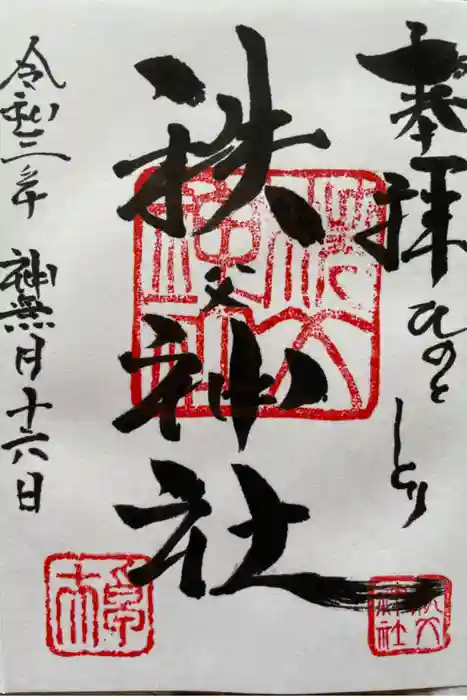 奉拝 ひのと とり
秩父神社
令和三年 神無月十六日
秩父神社